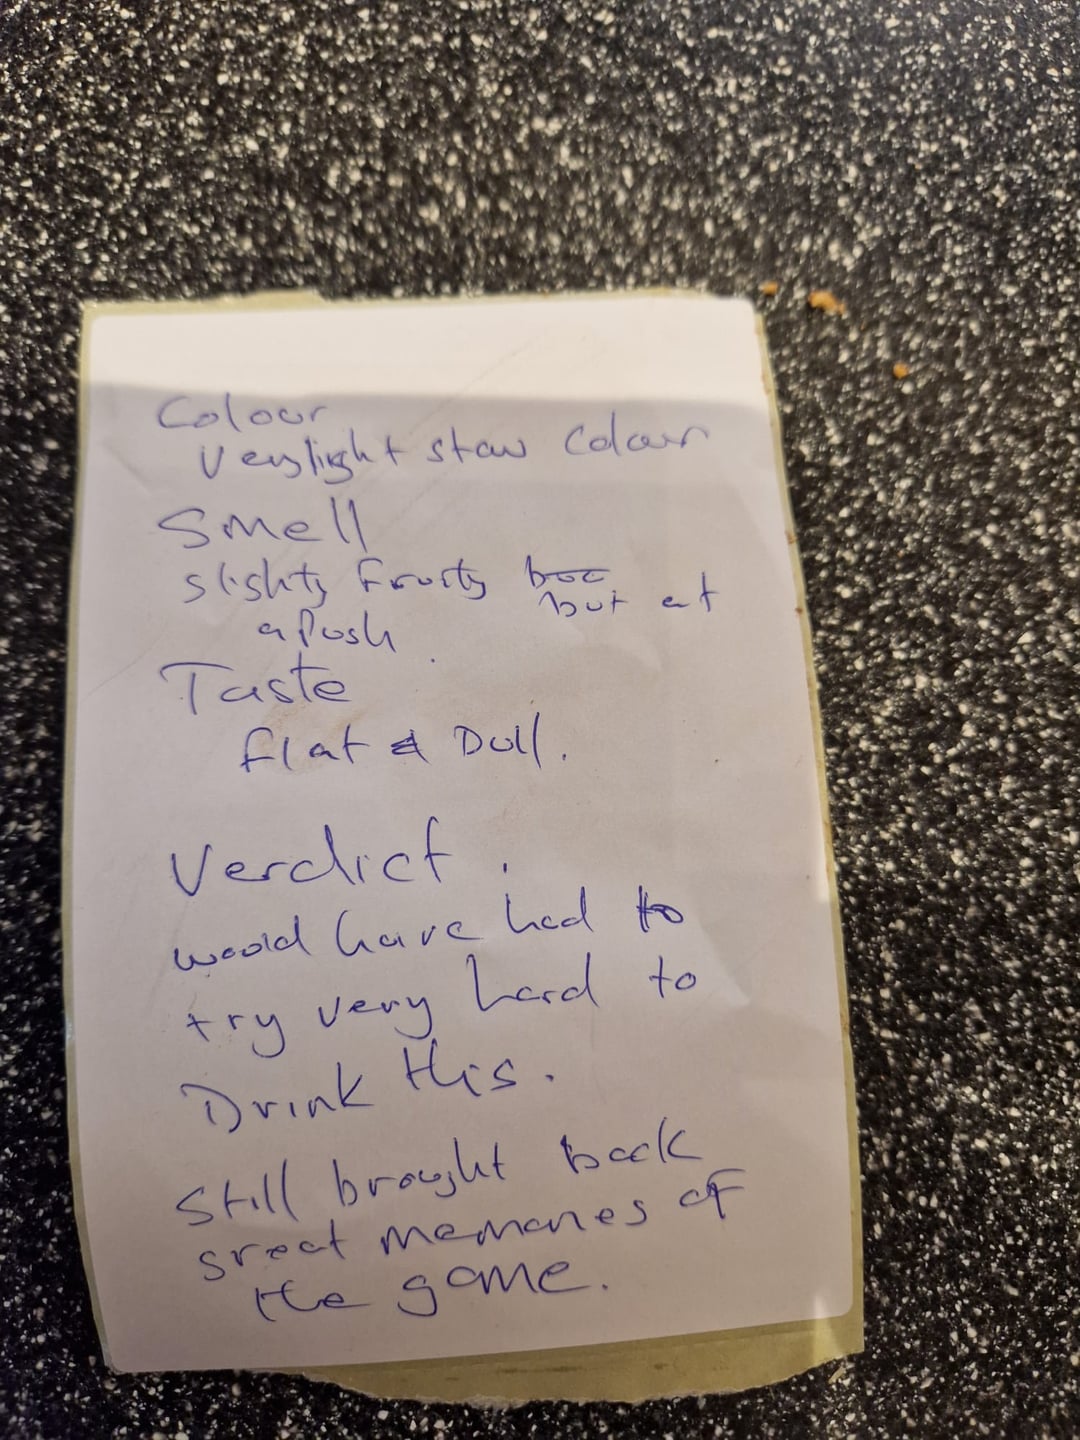 Colour
Very light staw Colour
Smell
slighty fruity
but at
a Push
Taste
flat & Dull.
Verdict.
would have had to
try very hard to
Drink this.
Still brought back
great memories of
the game.